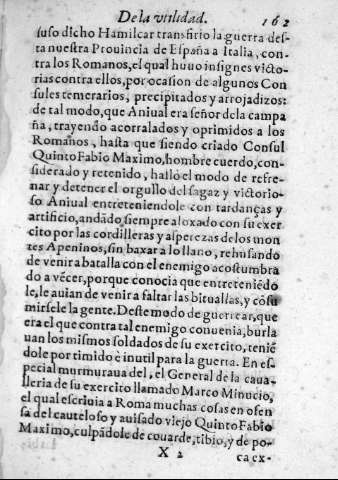 De la vtilidad. 162
suso dicho Hamilcar transfirio la guerra des-
ta nuestra Prouincia de España a Italia, con-
tra los Romanos, el qual huuo insignes victo-
rias contra ellos, por ocasion de algunos Con
sules temerarios, precipitados y arrojadizos:
de tal modo, que Aniual era señor de la campa
ña, trayendo acorralados y oprimidos a los
Romanos, hasta que siendo criado Consul
Quinto Fabio Maximo, hombre cuerdo, con-
siderado y retenido, hallò el modo de refre-
nar y detener el orgullo del sagaz y victorio-
so Aniual entreteniendole con tardanças y
artificio, andãdo siempre aloxado con su exer
cito por las cordilleras y asperezas de los mon
tes Apeninos, sin baxar a lo llano, rehusando
de venir a batalla con el enemigo acostumbra
do a vẽcer, porque conocia que entreteniẽdo
le, le auian de venir a faltar las bituallas, y cõsu
mirsele la gente. Deste modo de guerrear, que
era el que contra tal enemigo conuenia, burla
uan los mismos soldados de su exercito, teniẽ
dole por timido è inutil para la guerra. En es-
pecial murmuraua del, el General de la caua-
lleria de su exercito llamado Marco Minucio,
el qual escriuia a Roma muchas cosas en ofen
sa del cauteloso y auisado viejo Quinto Fabio
Maximo, culpãdole de couarde, tibio, y de po-
X 2 ca ex-